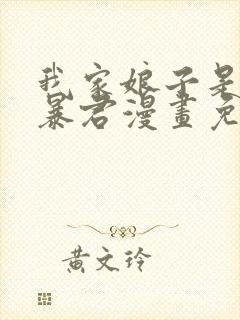 我家娘子是
暴君漫畫免
黄文玲